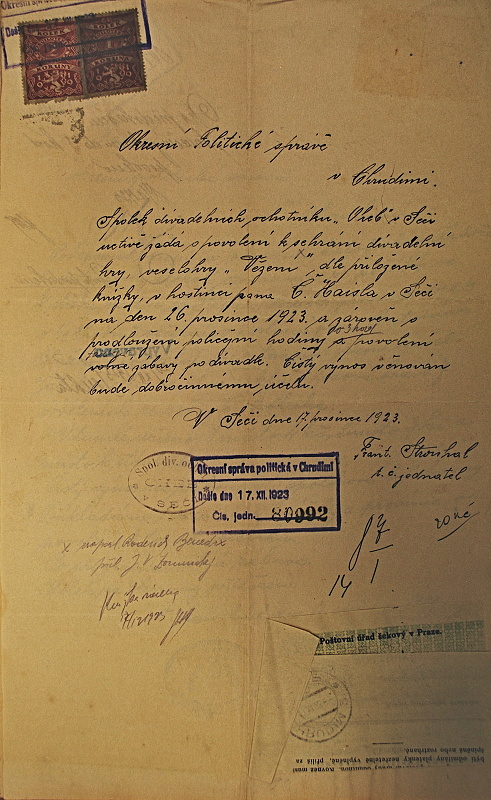 Okresní Politické správě
v Chrudimi.
Spolek divadelních ochotníku „Cheb" v Seči
uctivě žádá o povolení k sehrání divadelní
hry, veselohry „Vězení", dle přiložené
knížky, v hostinci pana Č. Haisla v Seči
na den 26. prosince 1923. a zároveň o
do 3 hod
prodloužení policejní hodiny a povolení
volné zábavy po divadle. Čistý výnos věnován
bude dobročinnému účelu.
V Seči dne 17. prosince 1923.
Frant. Strouhal
t. č. jednatel
Spol. div. och.
CHEB
SEČ
Okresní správa politická v Chrudimi
Došlo dne 17. XII. 1923
Čís. jedn. 80992
x napsal Roderich Benedix
14/1
Poštovní úřad šekový v Praze.